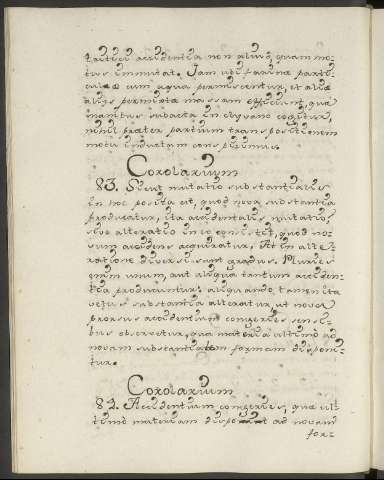 accidentia non aliud quam mo-
tus immutat. Jam ubi farinæ parti-
culæ cum aqua permiscentur, et aliæ
aliis permixtæ massam efficiunt, quæ
manibus subacta in clypano cogitur,
nihil præter partium transpositionem
motu inductam conspicimus.
Corolarium
83. Sicut mutatio substantialis
in hoc posita est, quod nova substantia
producatur, ita accidentalis mutatio,
sive alteratio in eo consistit, quod no-
vum accidens acquiratur. At in alte-
ratione diversi sunt gradus. Pluries
enim unum, aut aliqua tantum acciden-
tia producuntur: aliquando tamen ita
vetus substantia alteratur, ut nova
prorsus accidentium congeries sensi-
bus observetur, qua materia ultimo ad
novam substantialem formam disponi-
tur.
Corolarium
84. Accidentium congeries, quæ ul-
timo materiam disponit ad novam
for-